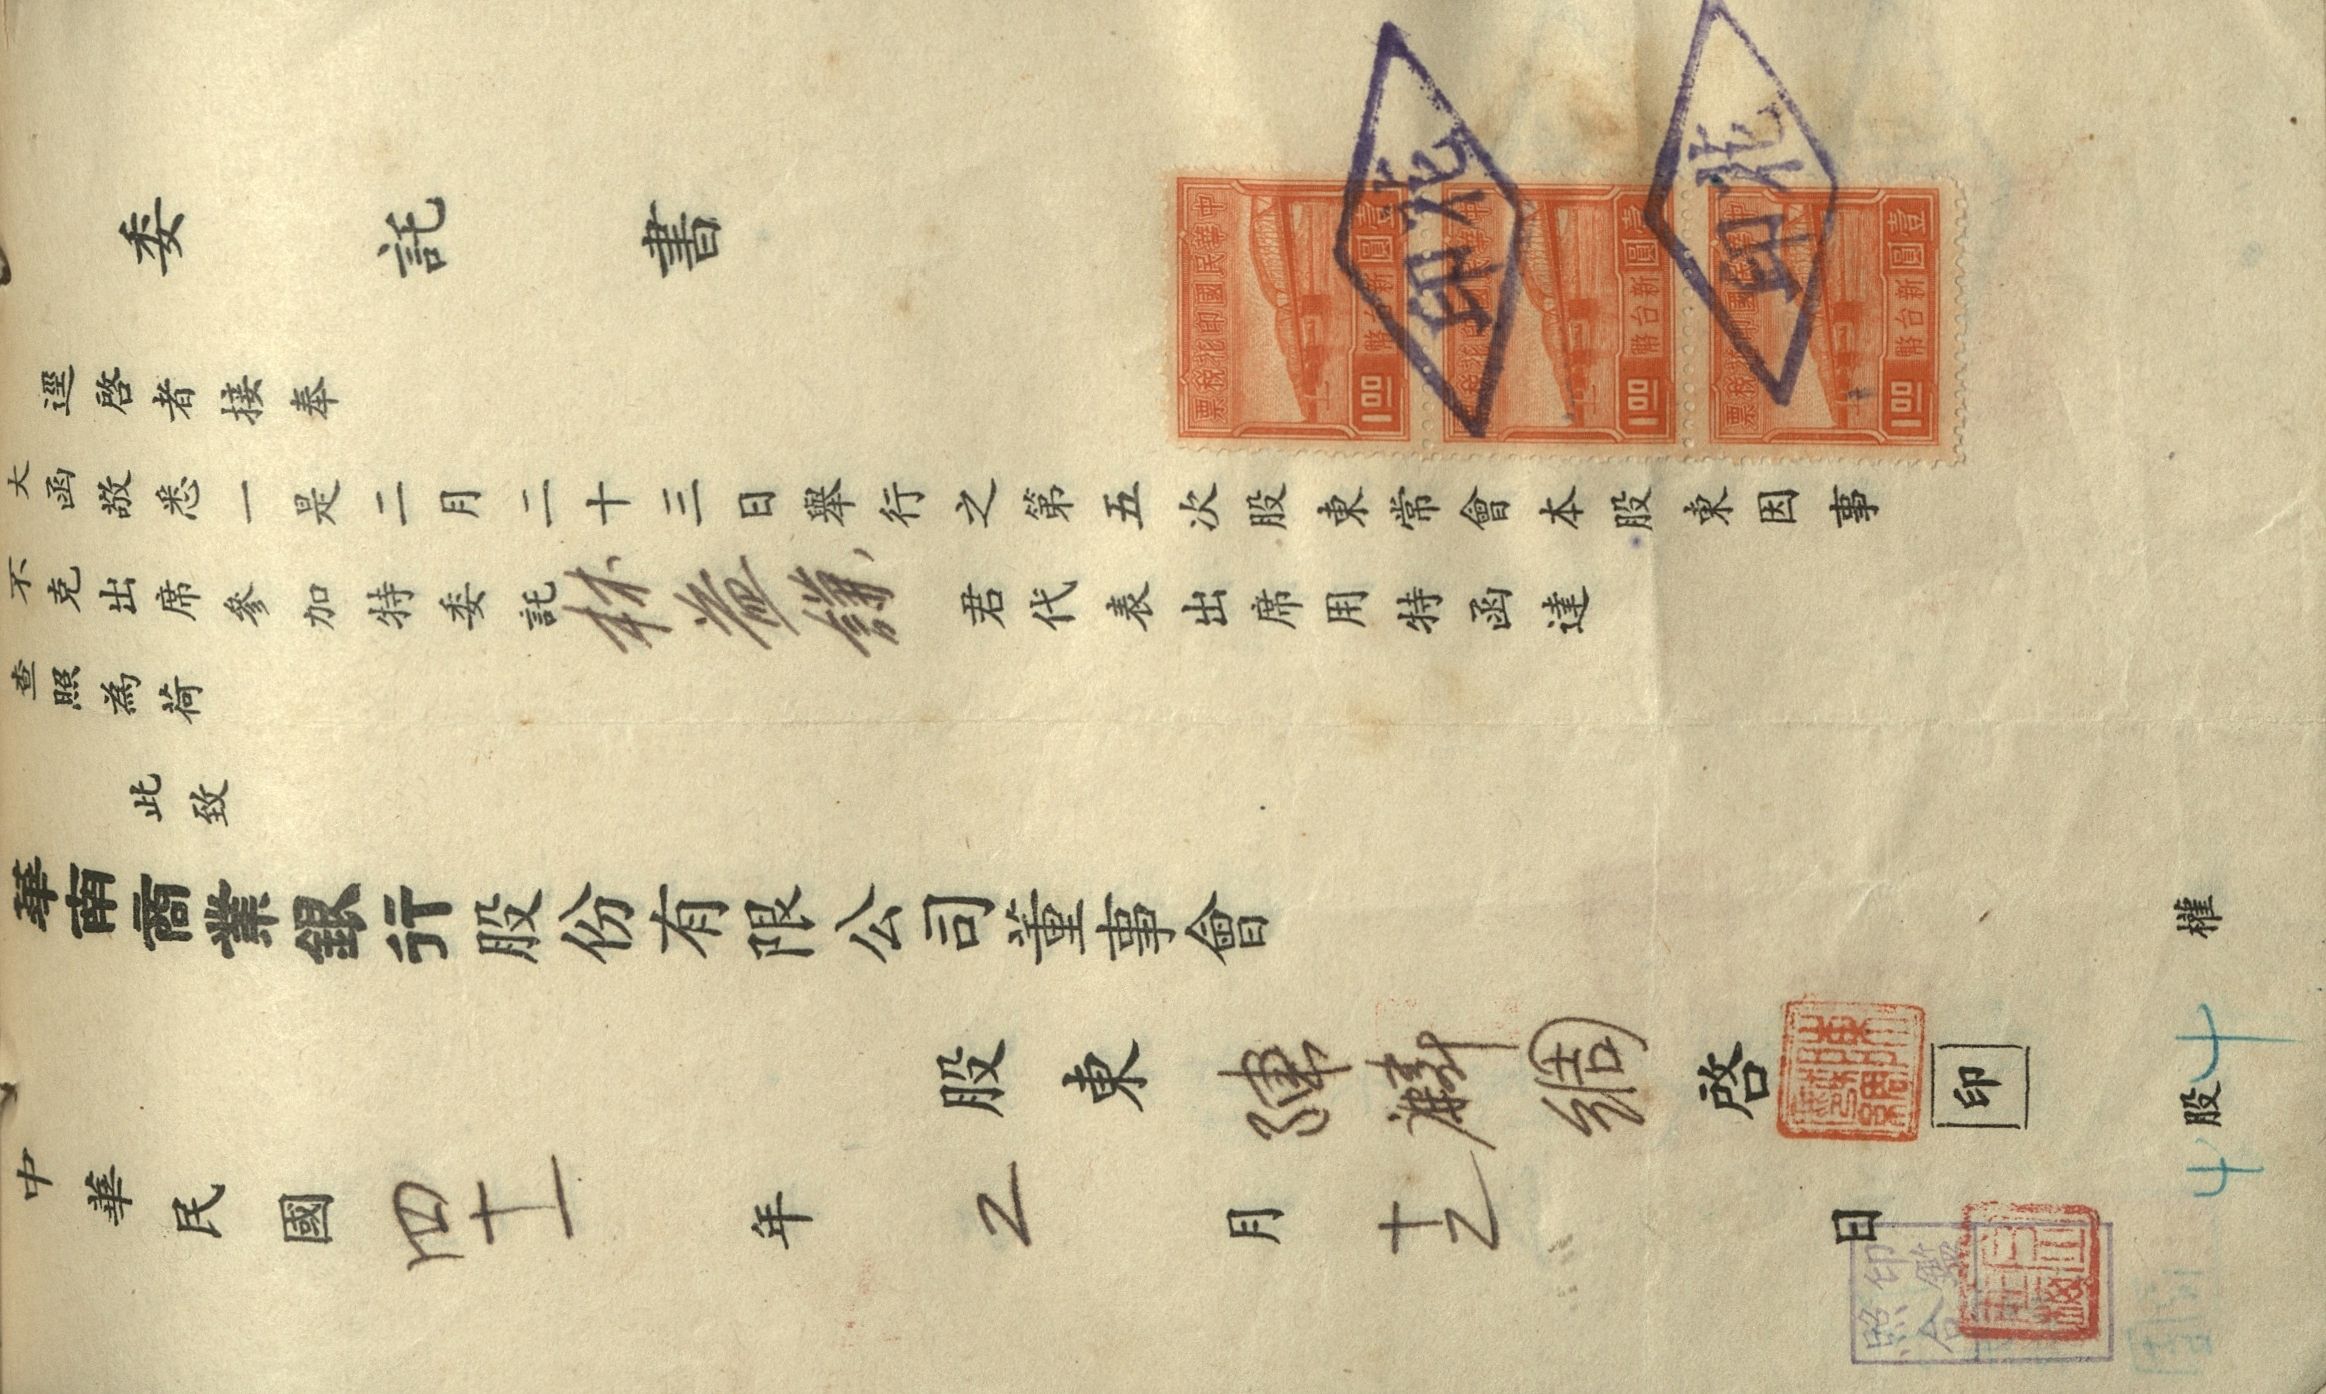 委託書
逕啓者接奉
大函敬悉一是二月二十三日舉行之第五次股東常會本股東因事
不克出席參加特委託林益謙君代表出席用特函達
查照為荷
此致
華南商業銀行股份有限公司董事會
股東 陳麟綢 啓 印
中華民國四十一年2月十2日
股 權
中華民國印花稅票
壹圓
新台幣
1.00
中華民國印花稅票
壹圓
新台幣
1.00
中華民國印花稅票
壹圓
新台幣
1.00
印花
印花
印鑑
照合